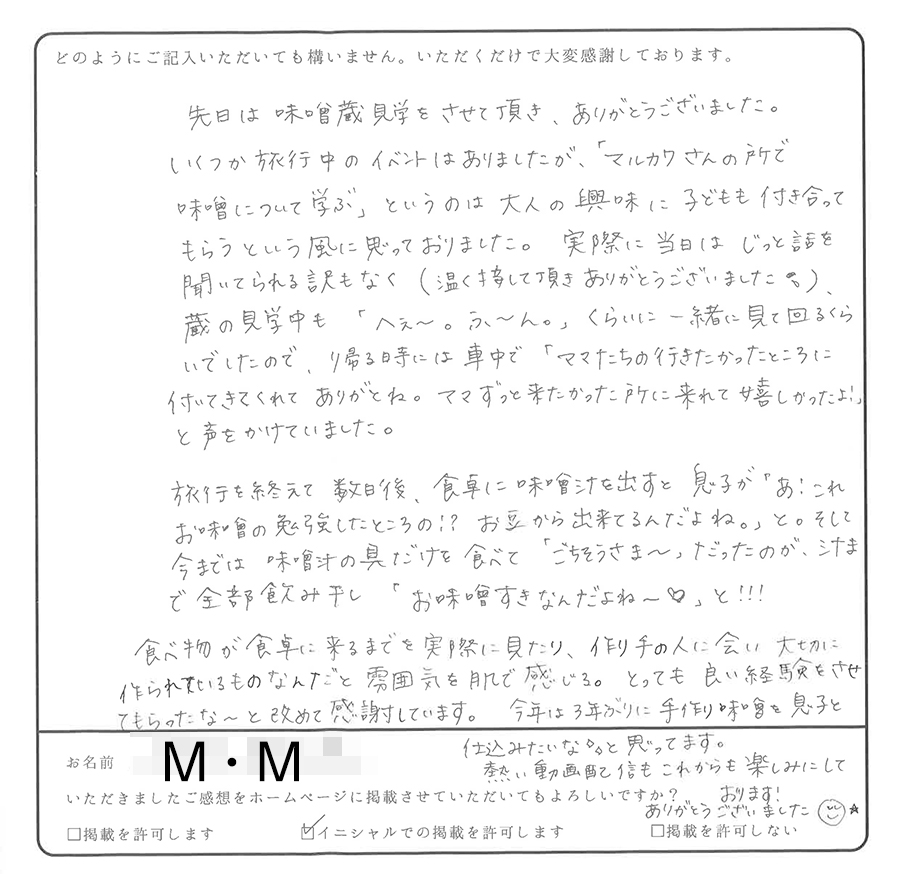 どのようにご記入いただいても構いません。いただくだけで大変感謝しております。
先日は 味噌蔵見学を させて頂き、ありがとうございました。
いくつか旅行中の イベントはありましたが、「マルカワさんの所で
味噌について学ぶ」というのは 大人の興味に 子どもも 付き合って
もらうという風に思っておりました。 実際に 当日は じっと話を
聞いてられる訳もなく (温く接して頂きありがとうございました)、
蔵の見学中も 「へぇ〜。ふ〜ん。」くらいに 一緒に見て回るくら
いでしたので、帰る時には 車中で 「ママたちの行きたかったところに
付いてきてくれて ありがとね。ママずっと来たかった所に来れて嬉しかったよ!」
と声をかけていました。
旅行を終えて 数日後、食卓に味噌汁を出すと 息子が「あ!これ
お味噌の勉強したところの!? お豆から出来てるんだよね。」と。そして
今までは 味噌汁の具だけを 食べて 「ごちそうさま〜」だったのが、汁ま
で全部飲み干し 「お味噌すきなんだよね〜♡」と!!!
食べ物が食卓に来るまでを実際に見たり、作り手の人に会い 大切に
作られているものなんだと 雰囲気を肌で感じる。とっても 良い経験をさせ
てもらったな〜と改めて感謝しています。 今年は3年ぶりに手作り味噌を息子と
仕込みたいな。。と思ってます。
熱い動画配信もこれからも楽しみにして
おります!
ありがとうございました
お名前 M・M
いただきましたご感想をホームページに掲載させていただいてもよろしいですか?
□掲載を許可します ☑イニシャルでの掲載を許可します □掲載を許可しない